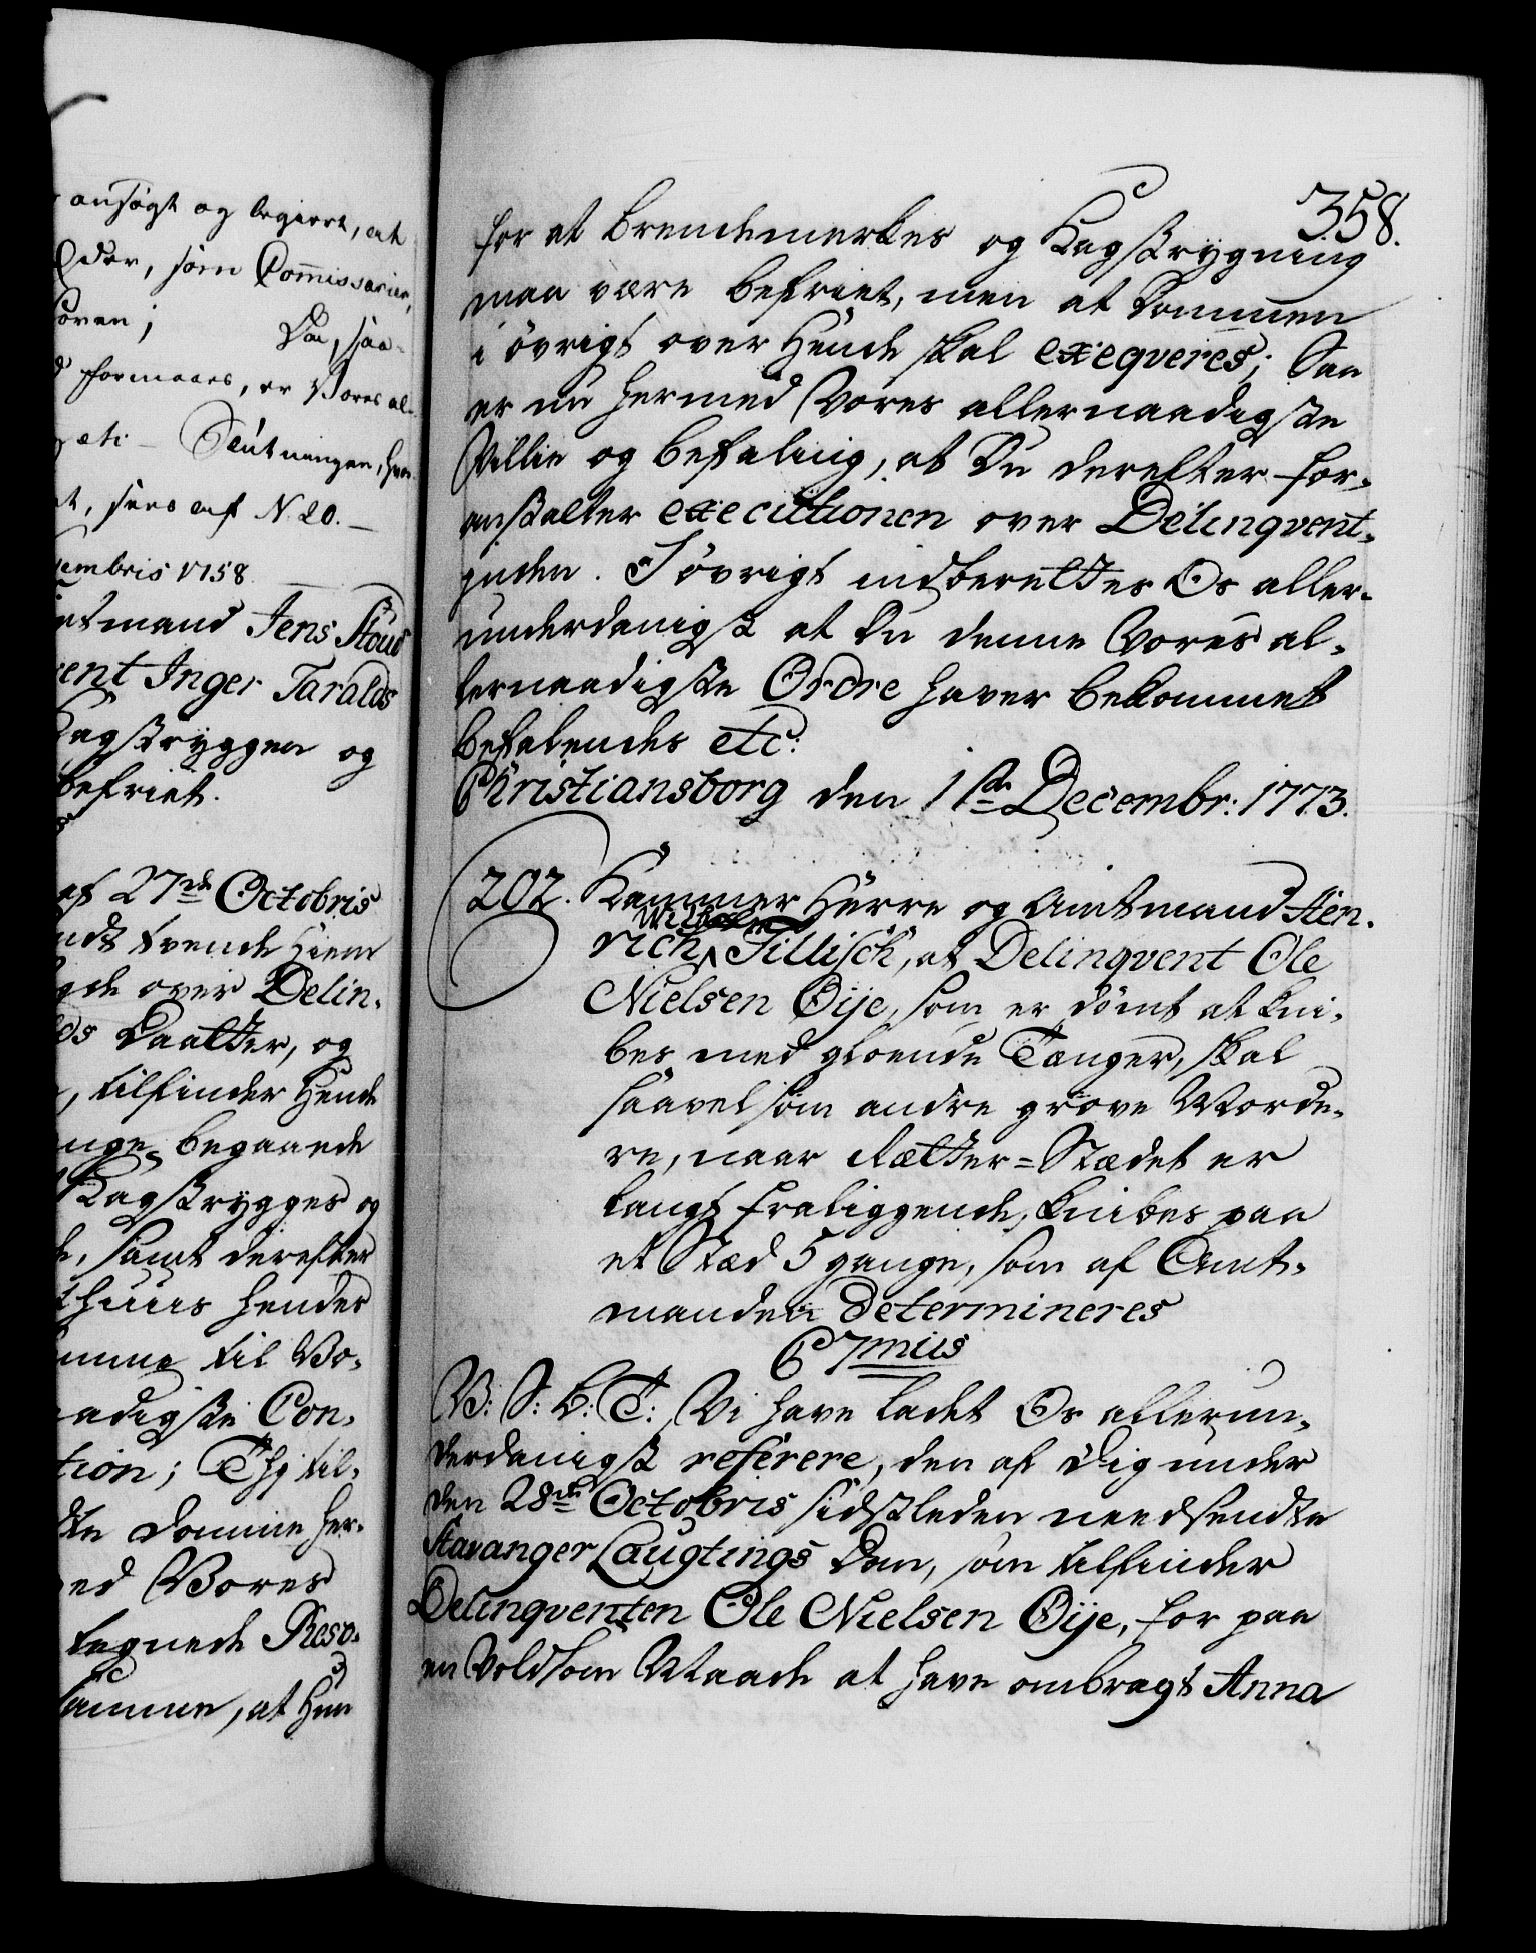 ansøgt og begiert, at
Eder, som Com̅issarier,
Da, saa
formaaes, er Vores al-
Slutningen, hvor
sees af N. 20.
embris 1758
mand Jens Stoud
ent Inger Taralds
Kagstryggen og
befriet.
af 27de Octobris
tvende Hiem
over Delin-
Daatter, og
tilfinder Hende
begaaede
Kagstrygges og
samt derefter
huus hendes
til Vo-
adigste Con-
tion; Thj til-
domme her-
ed Vores
tegnede Reso-
at hun
358.
for at brendemerkes og Kagstrygning
maa være befriet, men at Dommen
i øvrigt over Hende skal exeqveres; Saa
er nu hermed Vores allernaadigste
Villie og befaling, at Du derefter for-
anstalter executionen over Delinqvent-
inden. I øvrigt indberettes Os aller-
underdanigst at Du denne Vores al-
lernaadigste Ordre haver bekommet
befalendes etc:
Christiansborg den 1ste Decembr: 1773.
202. Kammer Herre og Amtmand Hen-
rich Tillisch, at Delinqvent Ole
Nielsen Øije, som er dømt at kni-
bes med gloende Tænger, skal
saavelsom andre grove Morde-
re, naar Rætter-Stædet er
langt fraliggende, knibes paa
et Stæd 5 gange, som af Amt-
manden determineres
C 7mus
V: S: B: T: Vi have ladet Os allerun-
derdanigst referere, den af Dig under
den 28de Octobris sidstleden needsendte
Stavanger Laugtings Dom, som tilfinder
Delinqventen Ole Nielsen Øije, for paa
en Voldsom Maade at have ombragt Anna